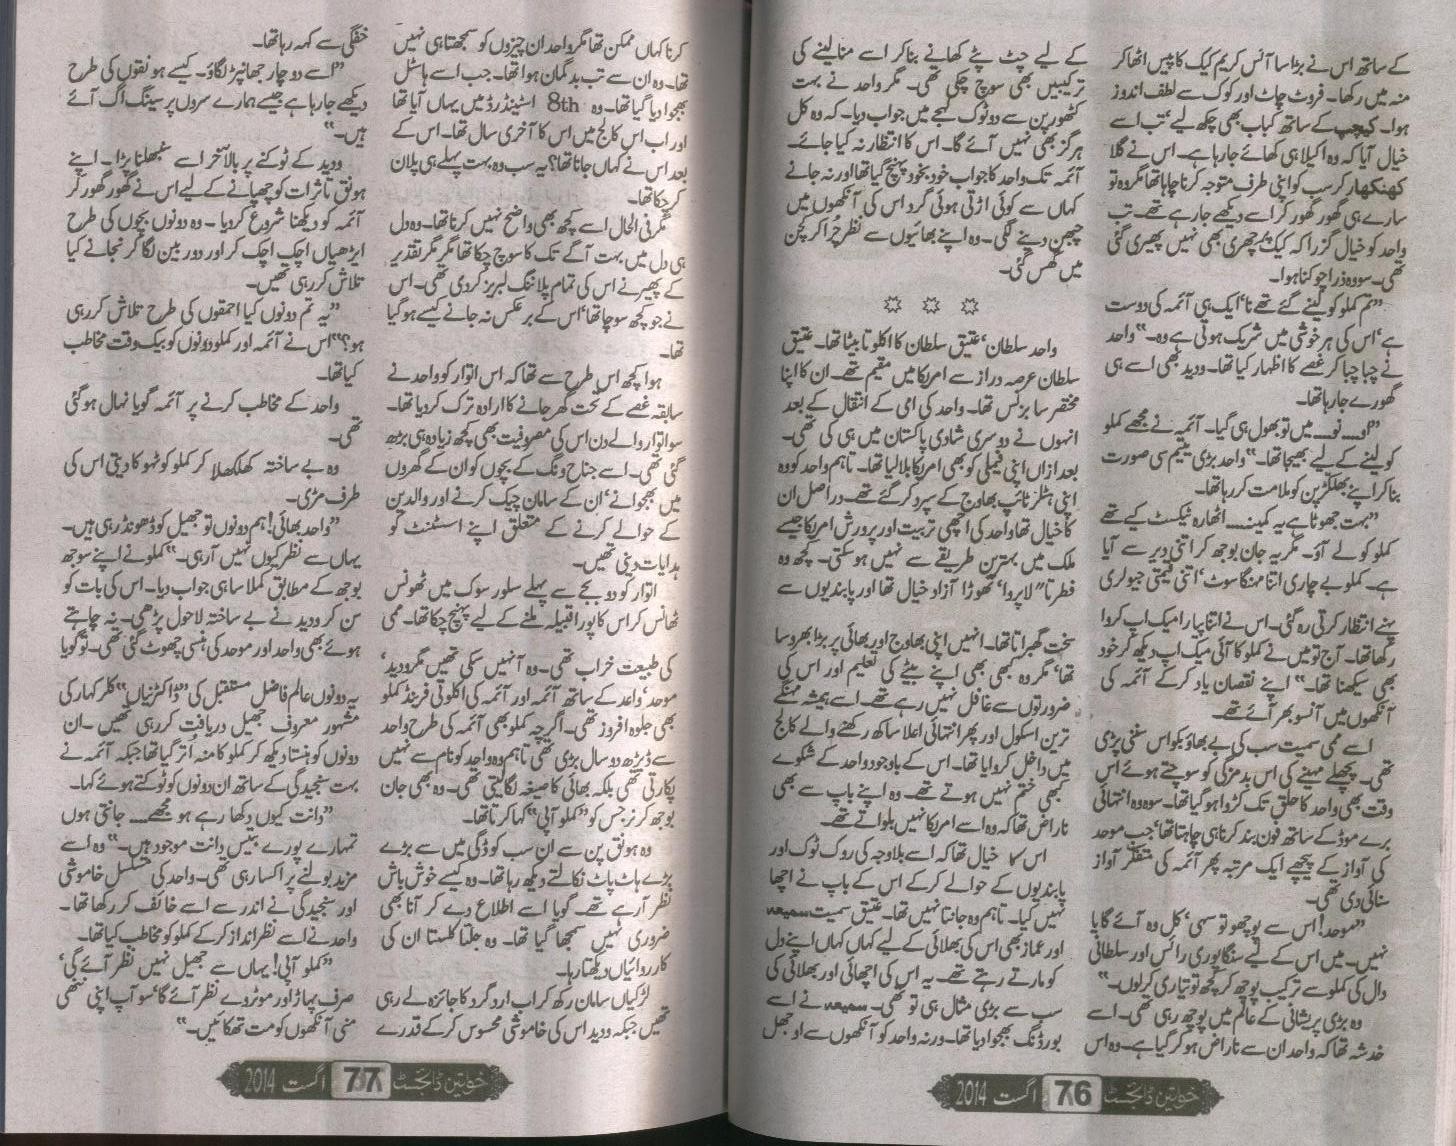 کے ساتھ اس نے بڑا سا آئس کریم کیک کا پیس اٹھا کر
منہ میں رکھا۔ فروٹ چاٹ اور کوک سے لطف اندوز
ہوا۔ کیچپ کے ساتھ کباب بھی چکھ لیے، تب اسے
خیال آیا کہ وہ اکیلا ہی کھائے جارہا ہے۔ اس نے گلا
کھنکھار کر سب کو اپنی طرف متوجہ کرنا چاہا تھا مگر وہ تو
سارے ہی گھور گھور کر اسے دیکھے جارہے تھے۔ تب
واحد کو خیال گزرا کہ کیک پہ چھری بھی نہیں پھیری گئی
تھی۔ سو وہ ذرا چوکنا ہوا۔
”تم کملو کو لینے گئے تھے نا، ایک ہی آئمہ کی دوست
ہے، اس کی ہر خوشی میں شریک ہوتی ہے وہ۔“ واحد
نے چبا چبا کر غصے کا اظہار کیا تھا۔ ودید بھی اسے ہی
گھورے جارہا تھا۔
”او۔۔۔ نو۔۔۔ میں تو بھول ہی گیا۔ آئمہ نے مجھے کملو
کو لینے کے لیے بھیجا تھا۔“ واحد بڑی یتیم سی صورت
بنا کر اپنے بھلکڑپن کو ملامت کر رہا تھا۔
”بہت جھوٹا ہے یہ کمینہ۔۔۔ اٹھارہ ٹیکسٹ کیے تھے
کملو کو لے آؤ۔ مگر یہ جان بوجھ کر اتنی دیر سے آیا
ہے۔ کملو بے چاری اتنا مہنگا سوٹ، اتنی قیمتی جیولری
پہنے انتظار کرتی رہ گئی۔ اس نے اتنا پیارا میک اپ کروا
رکھا تھا۔ آج تو میں نے کملو کا آئی میک اپ دیکھ کر خود
بھی سیکھنا تھا۔“ اپنے نقصان یاد کر کے آئمہ کی
آنکھوں میں آنسو بھر آئے تھے۔
اسے ممی سمیت سب کی بے بھاؤ بکواس سننی پڑی
تھی۔ پچھلے مہینے کی اس بدمزگی کو سوچتے ہوئے اس
وقت بھی واحد کا حلق تک کڑوا ہو گیا تھا۔ سو وہ انتہائی
برے موڈ کے ساتھ فون بند کرنا ہی چاہتا تھا، جب موحد
کی آواز کے پیچھے ایک مرتبہ پھر آئمہ کی متفکر آواز
سنائی دی تھی۔
”موحد! اس سے پوچھو تو سہی، کل وہ آئے گا یا
نہیں۔ میں اس کے لیے سنگاپوری رائس اور سلطانی
دال کی کملو سے ترکیب پوچھ کر کچھ تو تیاری کرلوں۔“
وہ بڑی پریشانی کے عالم میں پوچھ رہی تھی۔ اسے
خدشہ تھا کہ واحد ان سے ناراض ہو کر گیا ہے۔ وہ اس
کے لیے چٹ پٹے کھانے بنا کر اسے منا لینے کی
ترکیبیں بھی سوچ چکی تھی۔ مگر واحد نے بہت
کٹھورپن سے دوٹوک لہجے میں جواب دیا۔ کہ وہ کل
ہرگز بھی نہیں آئے گا۔ اس کا انتظار نہ کیا جائے۔
آئمہ تک واحد کا جواب خود بخود پہنچ گیا تھا اور نہ جانے
کہاں سے کوئی اڑتی ہوئی گرد اس کی آنکھوں میں
چبھن دینے لگی۔ وہ اپنے بھائیوں سے نظر چرا کر کچن
میں گھس گئی۔
واحد سلطان، عتیق سلطان کا اکلوتا بیٹا تھا۔ عتیق
سلطان عرصہ دراز سے امریکا میں مقیم تھے۔ ان کا اپنا
مختصر سا بزنس تھا۔ واحد کی امی کے انتقال کے بعد
انہوں نے دوسری شادی پاکستان میں ہی کی تھی۔
بعد ازاں اپنی فیملی کو بھی امریکا بلالیا تھا۔ تاہم واحد کو وہ
اپنی ہٹلر ٹائپ بھاوج کے سپرد کر گئے تھے۔ دراصل ان
کا خیال تھا واحد کی اچھی تربیت اور پرورش امریکا جیسے
ملک میں بہترین طریقے سے نہیں ہوسکتی۔ کچھ وہ
فطرتاً ”لاپروا، تھوڑا آزاد خیال تھا اور پابندیوں سے
سخت گھبراتا تھا۔ انہیں اپنی بھاوج اور بھائی پر بڑا بھروسا
تھا، مگر وہ کبھی بھی اپنے بیٹے کی تعلیم اور اس کی
ضرورتوں سے غافل نہیں رہے تھے۔ اسے ہمیشہ مہنگے
ترین اسکول اور پھر انتہائی اعلا ساکھ رکھنے والے کالج
میں داخل کروایا تھا۔ اس کے باوجود واحد کے شکوے
کبھی ختم نہیں ہوتے تھے۔ وہ اپنے باپ سے بھی
ناراض تھا کہ وہ اسے امریکا نہیں بلواتے تھے۔
اس کا خیال تھا کہ اسے بلاوجہ کی روک ٹوک اور
پابندیوں کے حوالے کر کے اس کے باپ نے اچھا
نہیں کیا۔ تاہم وہ جانتا نہیں تھا۔ عتیق سمیت سمیعہ
اور عماز بھی اس کی بھلائی کے لیے کہاں کہاں اپنے دل
کو مارتے رہتے تھے۔ یہ اس کی اچھائی اور بھلائی کی
سب سے بڑی مثال ہی تو تھی۔ سمیعہ نے اسے
بورڈنگ بھجوا دیا تھا۔ ورنہ واحد کو آنکھوں سے اوجھل
خواتین ڈائجسٹ 76 اگست 2014
کرنا کہاں ممکن تھا مگر واحد ان چیزوں کو سمجھتا ہی نہیں
تھا۔ وہ ان سے تب بدگمان ہوا تھا۔ جب اسے ہاسٹل
بھجوا دیا گیا تھا۔ وہ 8th اسٹینڈرڈ میں یہاں آیا تھا
اور اب اس کالج میں اس کا آخری سال تھا۔ اس کے
بعد اس نے کہاں جانا تھا؟ یہ سب وہ بہت پہلے ہی پلان
کرچکا تھا۔
مگر فی الحال اسے کچھ بھی واضح نہیں کرنا تھا۔ وہ دل
ہی دل میں بہت آگے تک کا سوچ چکا تھا مگر مگر تقدیر
کے پھیر نے اس کی تمام پلاننگ لبریز کردی تھی۔ اس
نے جو کچھ سوچا تھا، اس کے برعکس نہ جانے کیسے ہو گیا
تھا۔
ہوا کچھ اس طرح سے تھا کہ اس اتوار کو واحد نے
سابقہ غصے کے تحت گھر جانے کا ارادہ ترک کردیا تھا۔
سو اتوار والے دن اس کی مصروفیت بھی کچھ زیادہ ہی بڑھ
گئی تھی۔ اسے جناح ونگ کے بچوں کو ان کے گھروں
میں بھجوانے، ان کے سامان چیک کرنے اور والدین
کے حوالے کرنے کے متعلق اپنے اسسٹنٹ کو
ہدایات دینی تھیں۔
اتوار کو دو بجے سے پہلے سلور سوک میں ٹھونس
ٹھانس کر اس کا پورا قبیلہ ملنے کے لیے پہنچ چکا تھا۔ ممی
کی طبیعت خراب تھی۔ وہ آ نہیں سکی تھیں مگر ودید،
موحد، واعد کے ساتھ آئمہ اور آئمہ کی اکلوتی فرینڈ کملو
بھی جلوہ افروز تھی۔ اگرچہ کملو بھی آئمہ کی طرح واحد
سے ڈیڑھ دو سال بڑی تھی تاہم وہ واحد کو نام سے نہیں
پکارتی تھی بلکہ بھائی کا صیغہ لگالیتی تھی۔ وہ بھی جان
بوجھ کر نرجس کو ”کملو آپی“ کہا کرتا تھا۔
وہ ہونق پن سے ان سب کو ڈگی میں سے بڑے
بڑے ہاٹ پاٹ نکالتے دیکھ رہا تھا۔ وہ کیسے خوش باش
نظر آرہے تھے۔ گویا اسے اطلاع دے کر آنا بھی
ضروری نہیں سمجھا گیا تھا۔ وہ جلتا کلستا ان کی
کارروائیاں دیکھتا رہا۔
لڑکیاں سامان رکھ کر اب اردگرد کا جائزہ لے رہی
تھیں جبکہ ودید اس کی خاموشی محسوس کر کے قدرے
خفگی سے کہہ رہا تھا۔
”اسے دو چار جھانپڑ لگاؤ۔ کیسے ہونقوں کی طرح
دیکھے جارہا ہے جیسے ہمارے سروں پر سینگ اگ آئے
ہیں۔“
ودید کے ٹوکنے پر بالآخر اسے سنبھلنا پڑا۔ اپنے
ہونق تاثرات کو چھپانے کے لیے اس نے گھور گھور کر
آئمہ کو دیکھنا شروع کردیا۔ وہ دونوں بچوں کی طرح
ایڑھیاں اچک اچک کر اور دوربین لگا کر نجانے کیا
تلاش کررہی تھیں۔
”یہ تم دونوں کیا احمقوں کی طرح تلاش کررہی
ہو؟“ اس نے آئمہ اور کملو دونوں کو بیک وقت مخاطب
کیا تھا۔
واحد کے مخاطب کرنے پر آئمہ گویا نہال ہو گئی
تھی۔
وہ بے ساختہ کھلکھلا کر کملو کو ٹھوکا دیتی اس کی
طرف مڑی۔
”واحد بھائی! ہم دونوں تو جھیل کو ڈھونڈ رہی ہیں۔
یہاں سے نظر کیوں نہیں آرہی۔“ کملو نے اپنے سوجھ
بوجھ کے مطابق کملا سا ہی جواب دیا۔ اس کی بات کو
سن کر ودید نے بے ساختہ لاحول پڑھی۔ نہ چاہتے
ہوئے بھی واحد اور موحد کی ہنسی چھوٹ گئی تھی۔ تو گویا
یہ دونوں عالم فاضل مستقبل کی ”ڈاکٹرنیاں“ کلر کہار کی
مشہور معروف جھیل دریافت کررہی تھیں۔ ان
دونوں کو ہنستا دیکھ کر کملو کا منہ اتر گیا تھا جبکہ آئمہ نے
بہت سنجیدگی کے ساتھ ان دونوں کو ٹوکتے ہوئے کہا۔
”دانت کیوں دکھا رہے ہو مجھے۔۔۔ جانتی ہوں
تمہارے پورے بتیس دانت موجود ہیں۔“ وہ اسے
مزید بولنے پر اکسا رہی تھی۔ واحد کی مسلسل خاموشی
اور سنجیدگی نے اندر سے اسے خائف کر رکھا تھا۔
واحد نے اسے نظر انداز کرکے کملو کو مخاطب کیا تھا۔
”کملو آپی! یہاں سے جھیل نہیں نظر آئے گی،
صرف پہاڑ اور موٹروے نظر آئے گا، سو آپ اپنی ننھی
منی آنکھوں کو مت تھکائیں۔“
خواتین ڈائجسٹ 77 اگست 2014